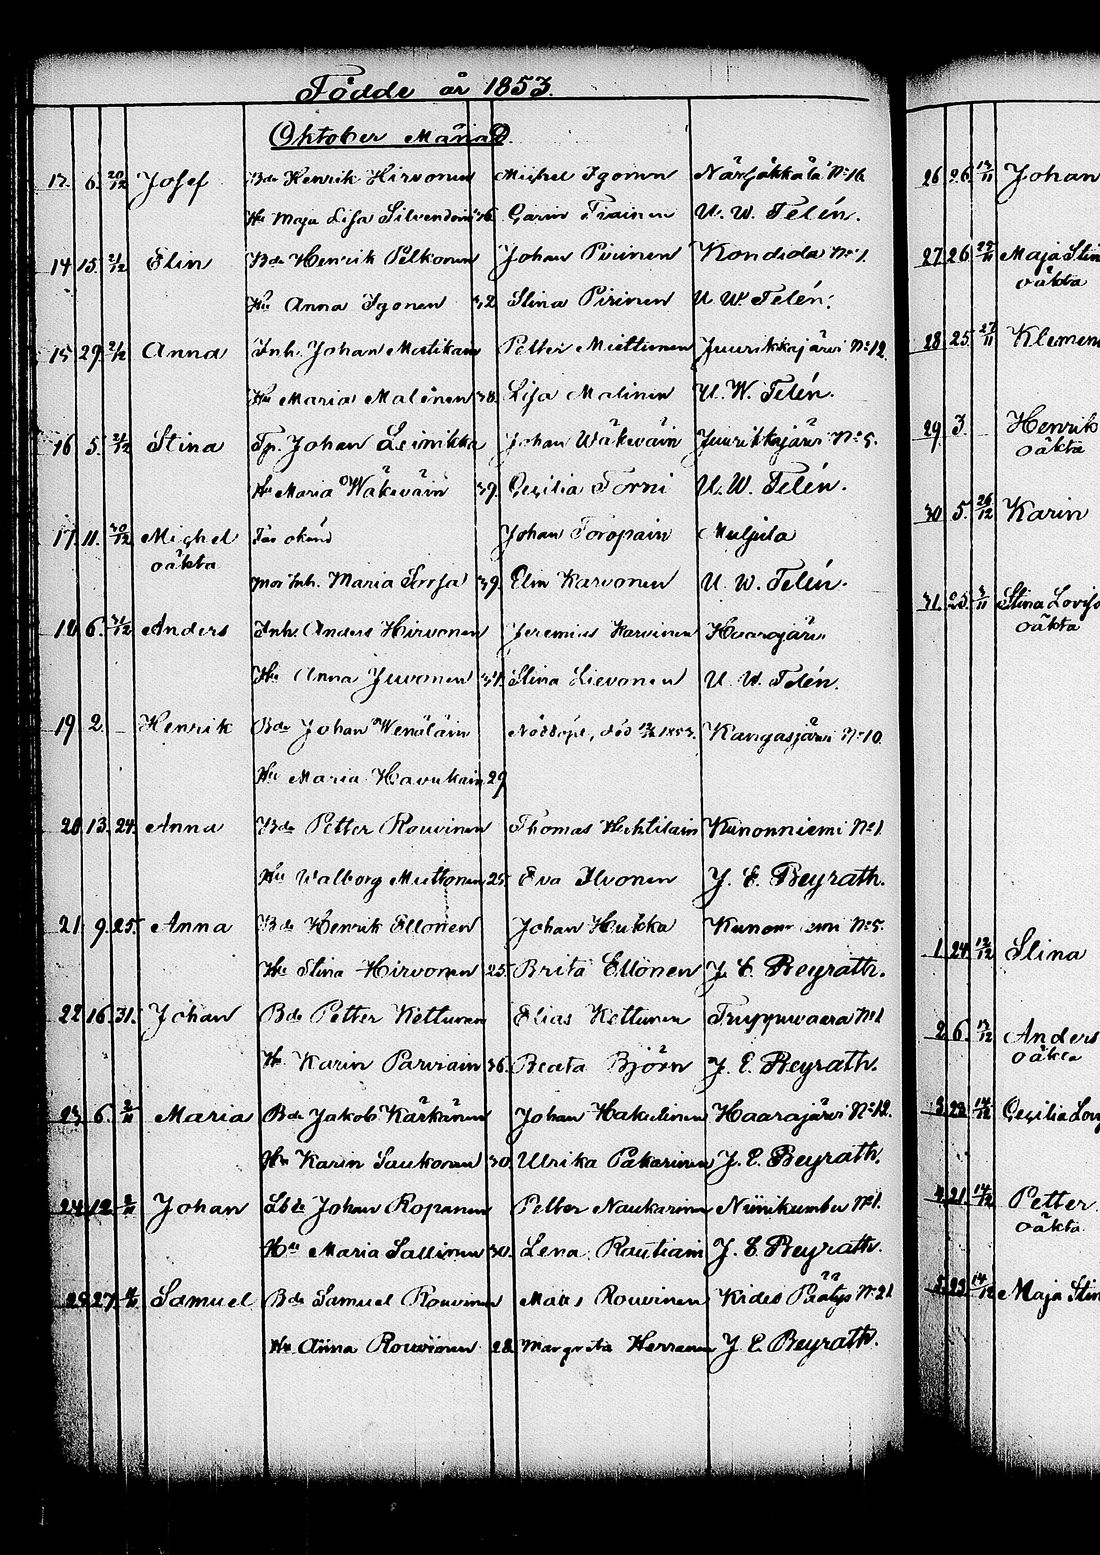 Födde år 1853.
Oktober Månad.
6. 20/12 Josef Bde Henrik Hirvonen Michel Igonen Närsäkkälä No 16.
Hu Maja Lisa Silvendoin 36 Carin Tiainen U. W. Telén.
14 15. 21/12 Elin Bde Henrik Pelkonen Johan Pirinen Kondida No 1.
Hu Anna Igonen 32 Stina Pirinen U. W. Telén.
15 29. Anna Inh. Johan Matikain Petter Miettinen Juurikkajärvi No 12.
Hu Maria Malinen 38. Lisa Malinen U. W. Telén.
16 5. Stina Tp. Johan Leimikka Johan Wäkeväin Juurikkajärvi No 5.
Hu Maria Wäkeväin 39. Cecilia Torni U. W. Telén.
17. 11. 30/12 Michel Far okänd Johan Toropain Muljula
oäkta
mor Inh. Maria Sorsa 39. Elin Karvonen U. W. Telén.
18 6. 31/12 Anders Inh Anders Hirvonen Jeremias Karvinen Haarajärvi
Hu Anna Juvonen 34. Stina Lievonen U. W. Telén.
19 2. – Henrik Bde Johan Wenäläin Nöddöpt, död 1853. Kangasjärvi No 10.
Hu Maria Havukain 29
20. 13. 24. Anna Bde Petter Rouvinen Thomas Hechtilain Kunonniemi No 1.
Hu Walborg Muttonen 25. Eva Ilvonen J. E. Beyrath.
21. 9. 25. Anna Bde Henrik Ellonen Johan Hukka No 5.
Hu Stina Hirvonen 25. Brita Ellonen J. E. Beyrath.
22 16. 31. Johan Bde Petter Kettunen Elias Kettunen Truppuvaara No 1
Hu Karin Parviain 36. Beata Björn J. E. Beyrath.
23. 6. 2/11 Maria Bde Jakob Kärkänen Johan Hakulinen Haarajärvi No 12.
Hu Karin Saukonen 30. Ulrika Pakarinen J. E. Beyrath.
24 12. 2/11 Johan Lbde Johan Ropanen Petter Naukarinen Niinikumbu No 1.
Hu Maria Sallinen 30. Lena Rautiain J. E. Beyrath.
25 27. Samuel Bde Samuel Rouvinen Matts Rouvinen Kides Päätys No 21
Hu Anna Rouvinen 28. Margreta Herranen J. E. Beyrath.
26 26. 13/11 Johan
27 26. Maja Stin
oäkta
28 25. 27/11 Klemen
29 3 Henrik
oäkta
30 5. 26/12 Karin
31. 25. Stina Lovisa
oäkta
1. 24. Stina
2 6. Anders
oäkta
3. 23. 14/12 Cecilia Lov
4. 21. 14/12 Petter
oäkta
5. 23. Maja Stin